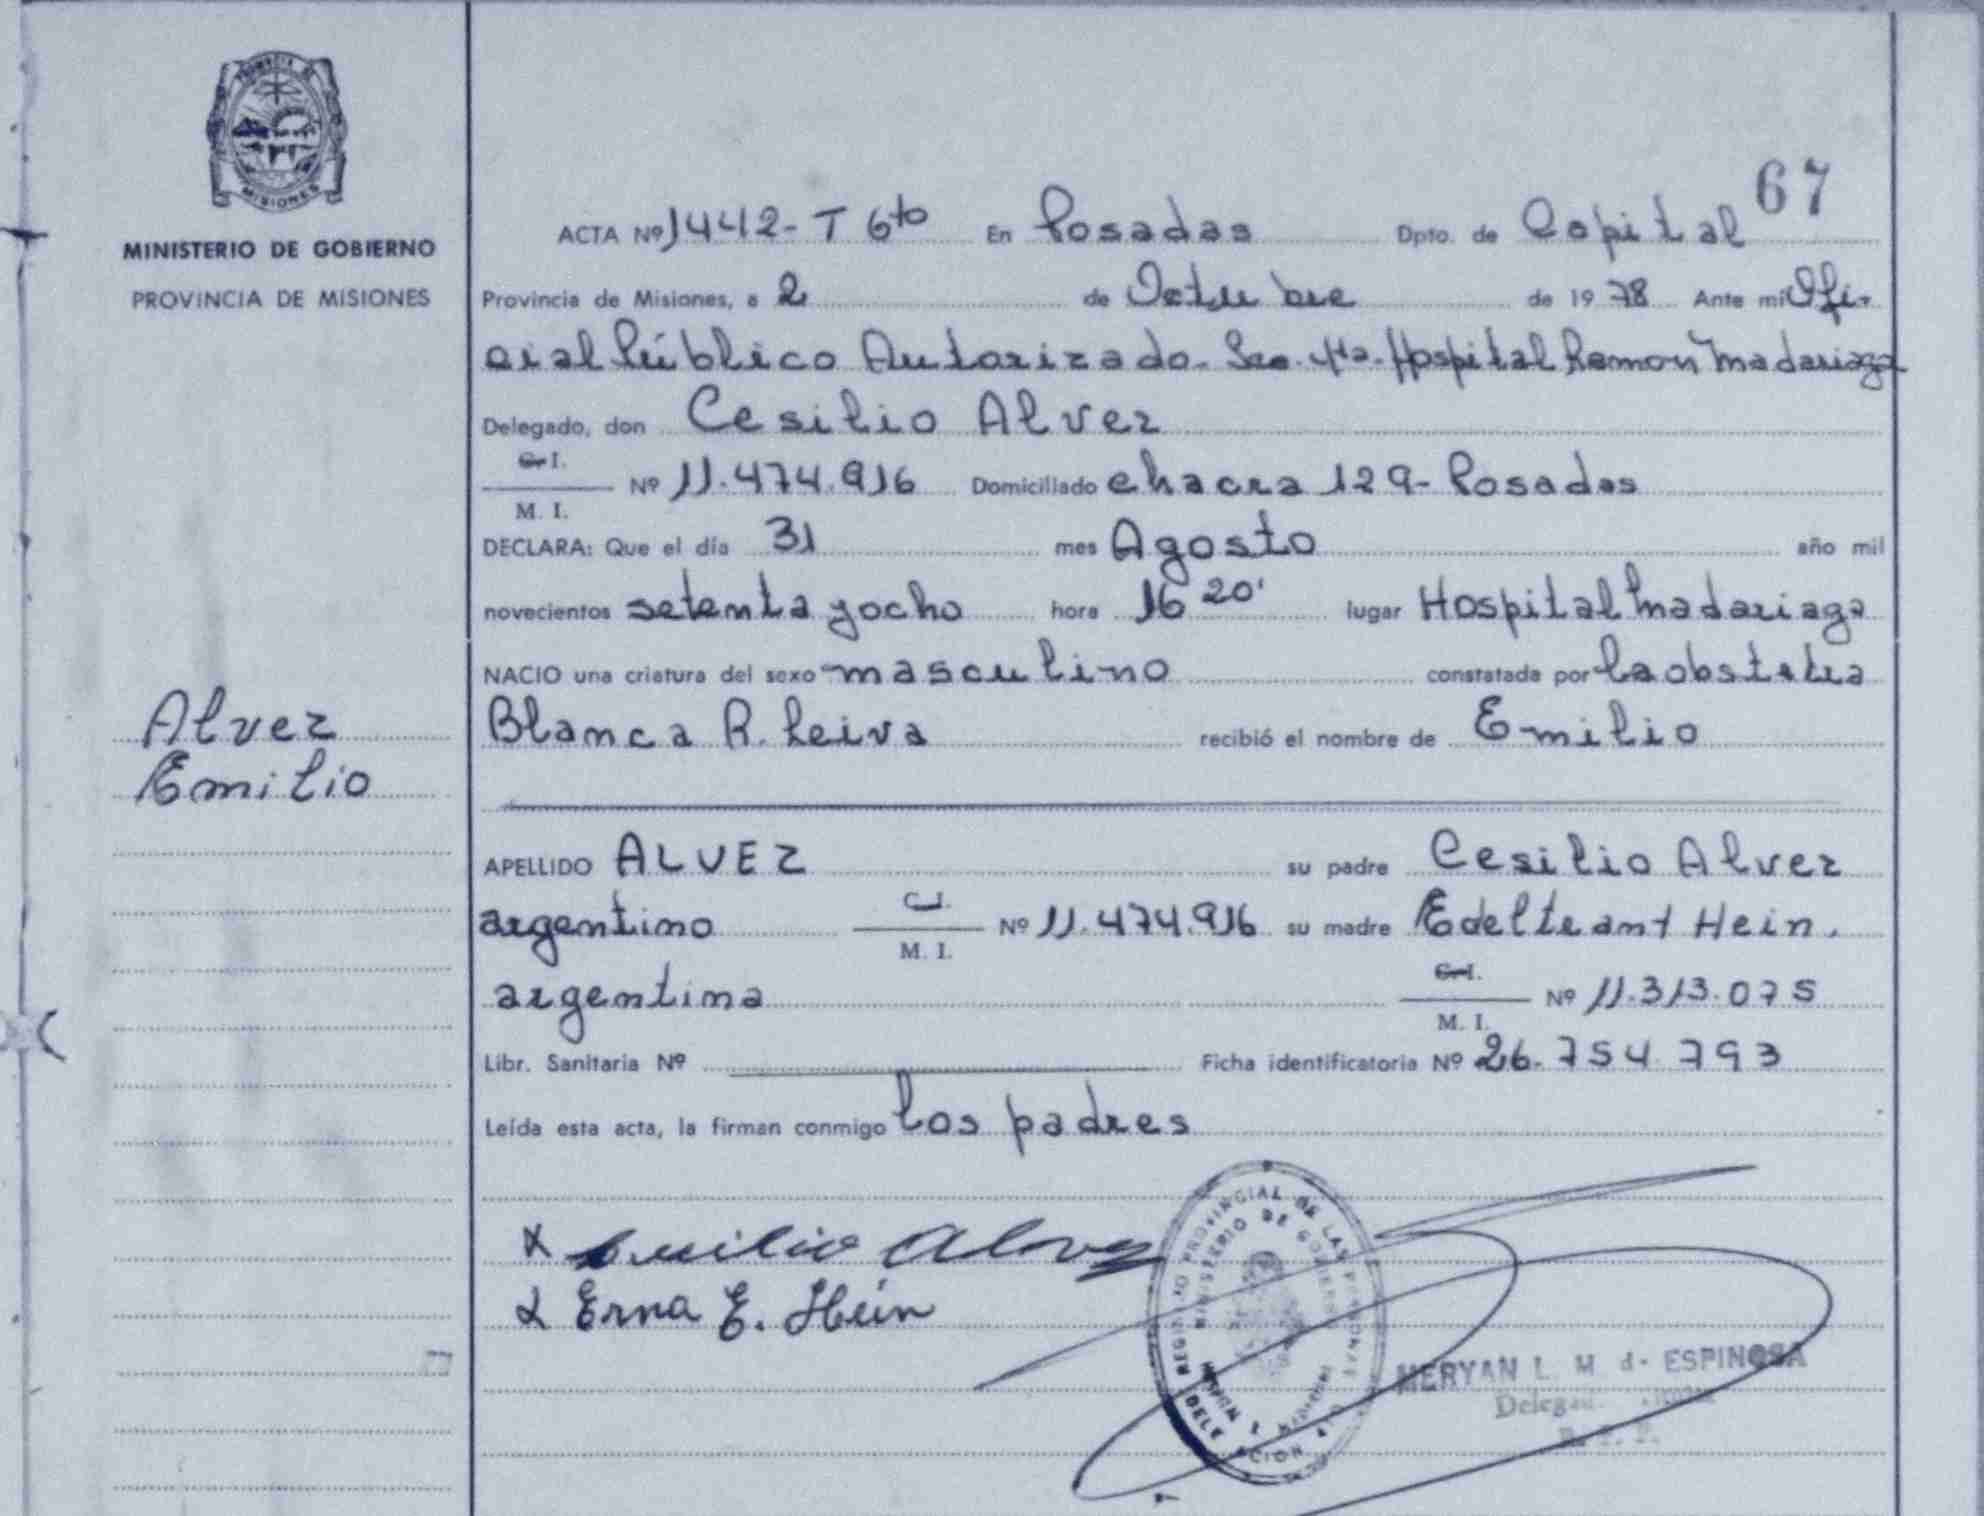 PROVINCIA DE
MISIONES
MINISTERIO DE GOBIERNO
PROVINCIA DE MISIONES
Alvez
Emilio
67
ACTA Nº 1442-T 6to En Posadas Dpto. de Capital
Provincia de Misiones, a 2 de Octubre de 1978 Ante mi Ofi-
cial Público Autorizado. Sec. 4ta. Hospital Ramon Madariaga
Delegado, don Cesilio Alvez
C. I.
M. I. Nº 11.474.916 Domiciliado chacra 129- Posadas
DECLARA: Que el día 31 mes Agosto año mil
novecientos setenta y ocho hora 16 20' lugar Hospital Madariaga
NACIO una criatura del sexo masculino constatada por la obstetra
Blanca R. Leiva recibió el nombre de Emilio
APELLIDO ALVEZ su padre Cesilio Alvez
argentino C.I. M. I. Nº 11.474.916 su madre Edelteant Hein.
argentina C. I. M. I. Nº 11.313.075
Libr. Sanitaria Nº Ficha identificatoria Nº 26.754.793
Leída esta acta, la firman conmigo los padres
x Alvez
x Erna E. Hein
REGISTRO PROVINCIAL DE LAS PERSONAS
MINISTERIO DE GOBIERNO
MERYAN L. M. d. ESPINOSA